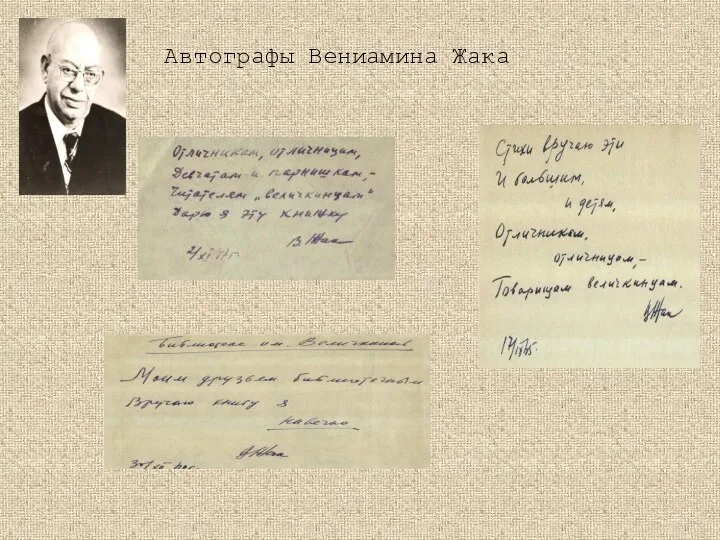 Автографы Вениамина Жака
Отличникам, отличницам,
Девчатам и парнишкам,-
Читателям „величкинцам"
Дарю я эту книжку
В. Жак
Стихи вручаю эти
И большим,
и детям,
Отличникам,
отличницам,-
Товарищам величкинцам.
ВЖак
Библиотеке им. Величкиной
Моим друзьям библиотечным
Вручаю книгу я
навечно
ВЖак